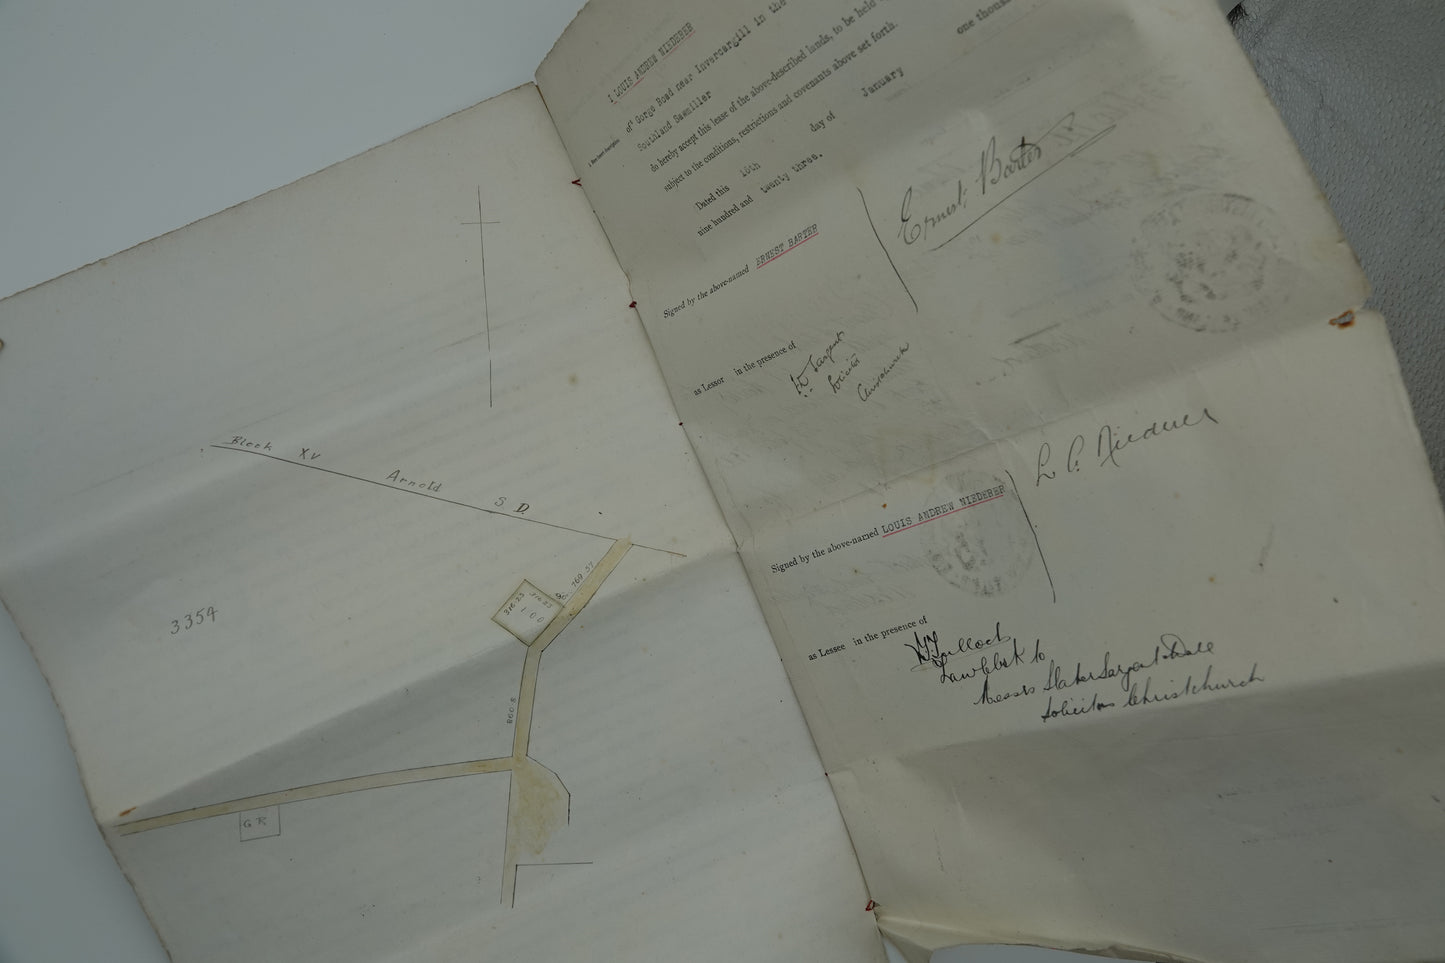 Block XV Arnold S D.
3354
769.57
316.23 316.23
1 0 0
860.8
G R
I LOUIS ANDREW NIEDERER
of Gorge Road near Invercargill in the
Southland Sawmiller
do hereby accept this lease of the above-described lands, to be held
subject to the conditions, restrictions and covenants above set forth.
Dated this 18th day of January one thousand
nine hundred and twenty three.
Signed by the above-named ERNEST BARTER
Ernest Barter
as Lessor in the presence of
Sargent
Solicitor
Christchurch
Signed by the above-named LOUIS ANDREW NIEDERER
L A Niederer
as Lessee in the presence of
Law Clerk to
Messrs Slater Sargent & Dale
Solicitors Christchurch